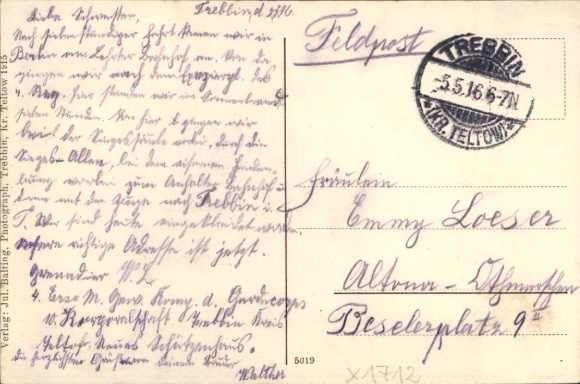 Trebbin, d. 5.5.16.
Liebe Schwester,
Nach siebenstündiger Fahrt kamen wir in
Berlin am Lehrter Bahnhof an. Von da
gingen wir nach dem Exerzierpl. des
4. Reg. Hier standen wir im Sonnenbrand
sieben Stunden. Von hier gingen wir
bei der Siegessäule vorbei, durch die
Sieges-Allee, bei dem eisernen Hinden-
burg vorbei zum Anhalter Bahnhof u.
dann mit dem Zuge nach Trebbin i.
T. Wir sind heute eingekleidet worden.
richtige Adresse ist jetzt.
Grenadier W. L.
4. Ers. M. Gew. Komp. d. Gardecorps
10. Korporalschaft Trebbin Kreis
Teltow Neues Schützenhaus.
die herzlichsten Grüße von deinem Bruder
Walther
Verlag: Jul. Balting, Photograph, Trebbin, Kr. Teltow 1915
Feldpost
TREBBIN
5.5.16.6-7N
*(KR. TELTOW)*
Fräulein
Emmy Loeser
Altona-Othmarschen
Beselerplatz 9II
5019
X1712